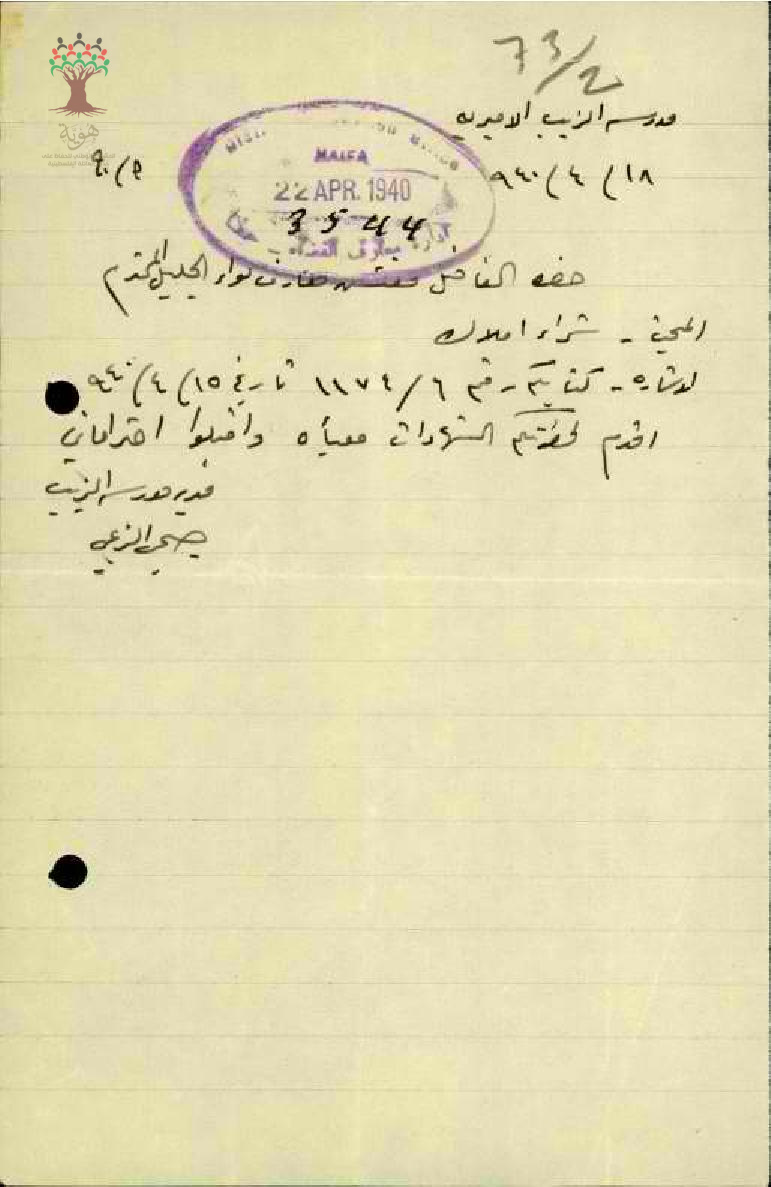 73/2
هوية
مدرسة الزيب الاميرية
١٨/٤/٩٤٠
HAIFA
22 APR. 1940
3544
ادارة معارف القضاء - حيفا
حضرة الفاضل مفتش معارف لواء الجليل المحترم
المبحث - شراء املاك
الاشارة - كتابكم رقم ١١٧٤/٦ تاريخ ١٥/٤/٩٤٠
اقدم لحضرتكم الشهادات معبأه واقبلوا احتراماتي
مدير مدرسة الزيب
صبحي الزعبي